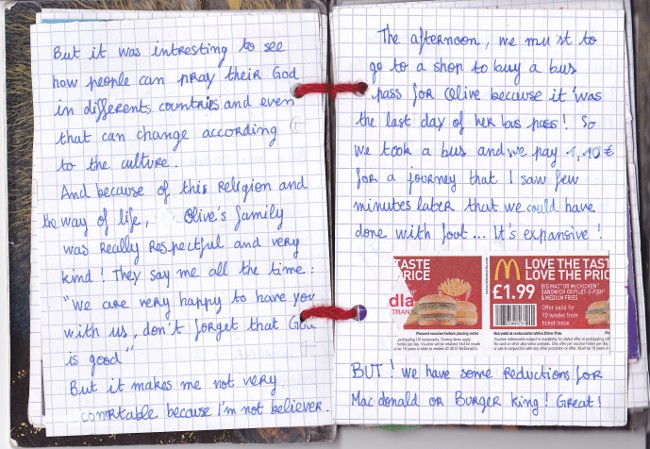 But it was intresting to see
how people can pray their God
in differents countries and even
that can change according
to the culture.
And because of this religion and
the way of life, Olive's family
was really respectful and very
kind! They say me all the time:
"We are very happy to have you
with us, don't forget that God
is good"
But it makes me not very
comrtable because I'm not believer.
The afternoon, we must to
go to a shop to buy a bus
pass for Olive because it was
the last day of her bus pass! So
we took a bus and we pay 1,10€
for a journey that I saw few
minutes later that we could have
done with foot... It's expansive!
TASTE
RICE
dla
TRAN
Prevent voucher before placing order.
LOVE THE TAST
LOVE THE PRIC
£1.99
BIG MAC® OR McCHICKEN®
SANDWICH OR FILET-O-FISH®
& MEDIUM FRIES
Offer valid for
10 weeks from
ticket issue
Not valid at restaurants within Drive-Thru
BUT! We have some reductions for
Mac donald or Burger King! Great!